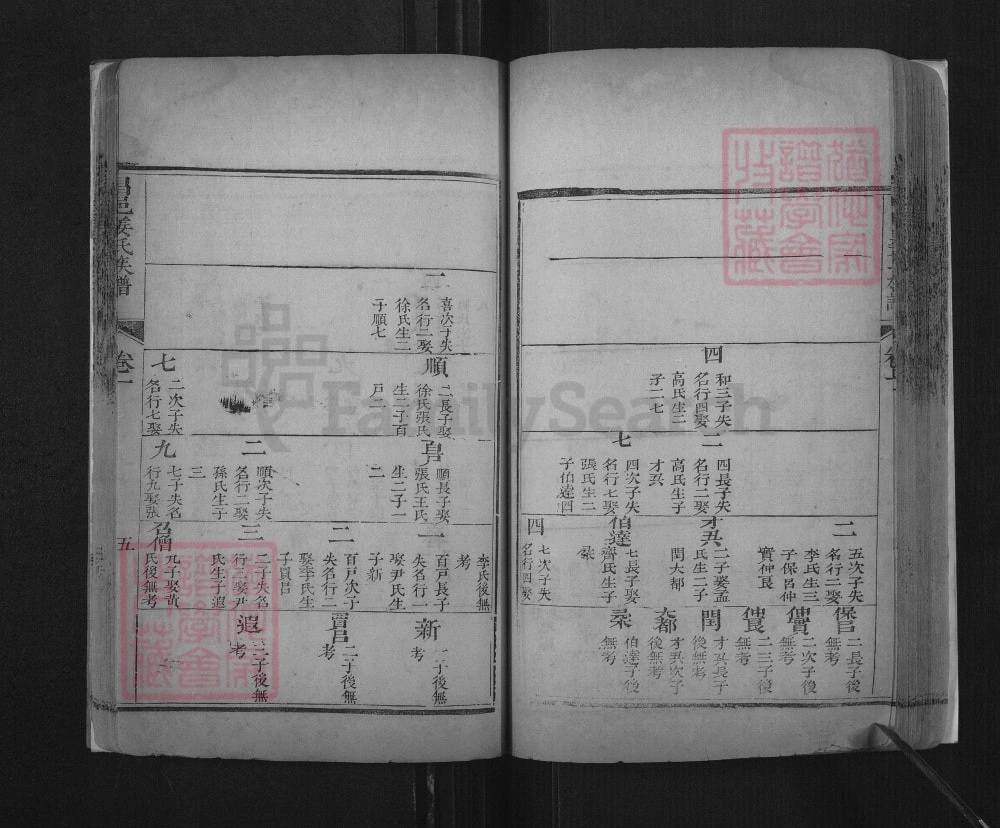 四
和三子失
名行四娶
高氏生二
子二七
二
四長子失
名行二娶
高氏生子
才㒷
七
四次子失
名行七娶
張氏生二
子伯達四
二
五次子失
名行二娶
李氏生三
子保呂仲
賓仲良
二子娶孟
氏生二子
閏大都
伯達
七長子娶
齊氏生子
四
七次子失
名行四娶
二長子後
無考
二次子後
無考
二三子後
無考
閏
才㒷長子
後無考
才㒷次子
後無考
伯達子後
無考
姜氏族譜
卷一
五
二
喜次子失
名行二娶
徐氏生二
子順七
順
二長子娶
徐氏張氏
生二子百
戶二
七
二次子失
名行七娶
順長子娶
張氏王氏
生二子一
二
二
順次子失
名行二娶
孫氏生子
三
九
七子失名
行九娶張
李氏後無
考
一
百戶長子
失名行一
娶尹氏生
子新
二
百戶次子
失名行二
娶李氏生
子賈呂
三
二子失名
行三娶尹
氏生子遐
九子娶黃
氏後無考
新
一子後無
考
賈呂
二子後無
考
遐
三子後無
考
FamilySearch